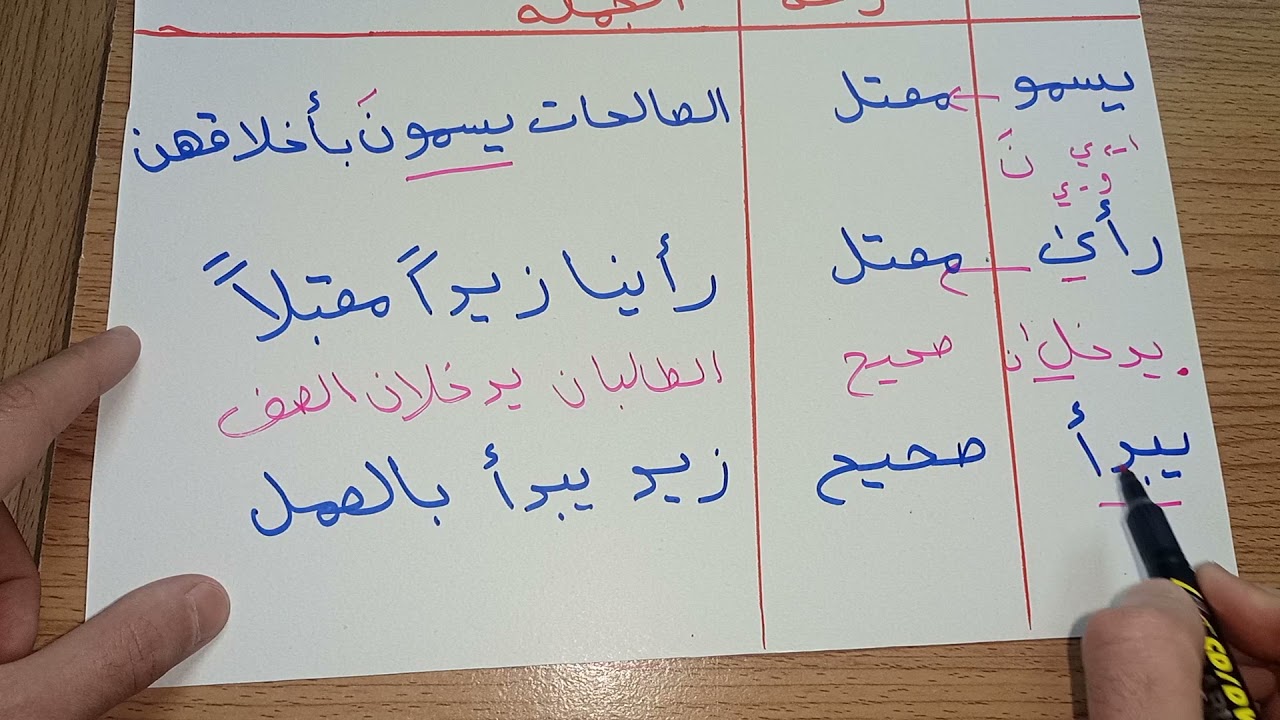 الجملة
يسمو معتل الصالحات يسمونَ بأخلاقهن
نَ
رأى معتل رأينا زيداً مقبلاً
يدخلان صحيح الطالبان يدخلان الصف
يبدأ صحيح زيد يبدأ بالعمل
CD/DV